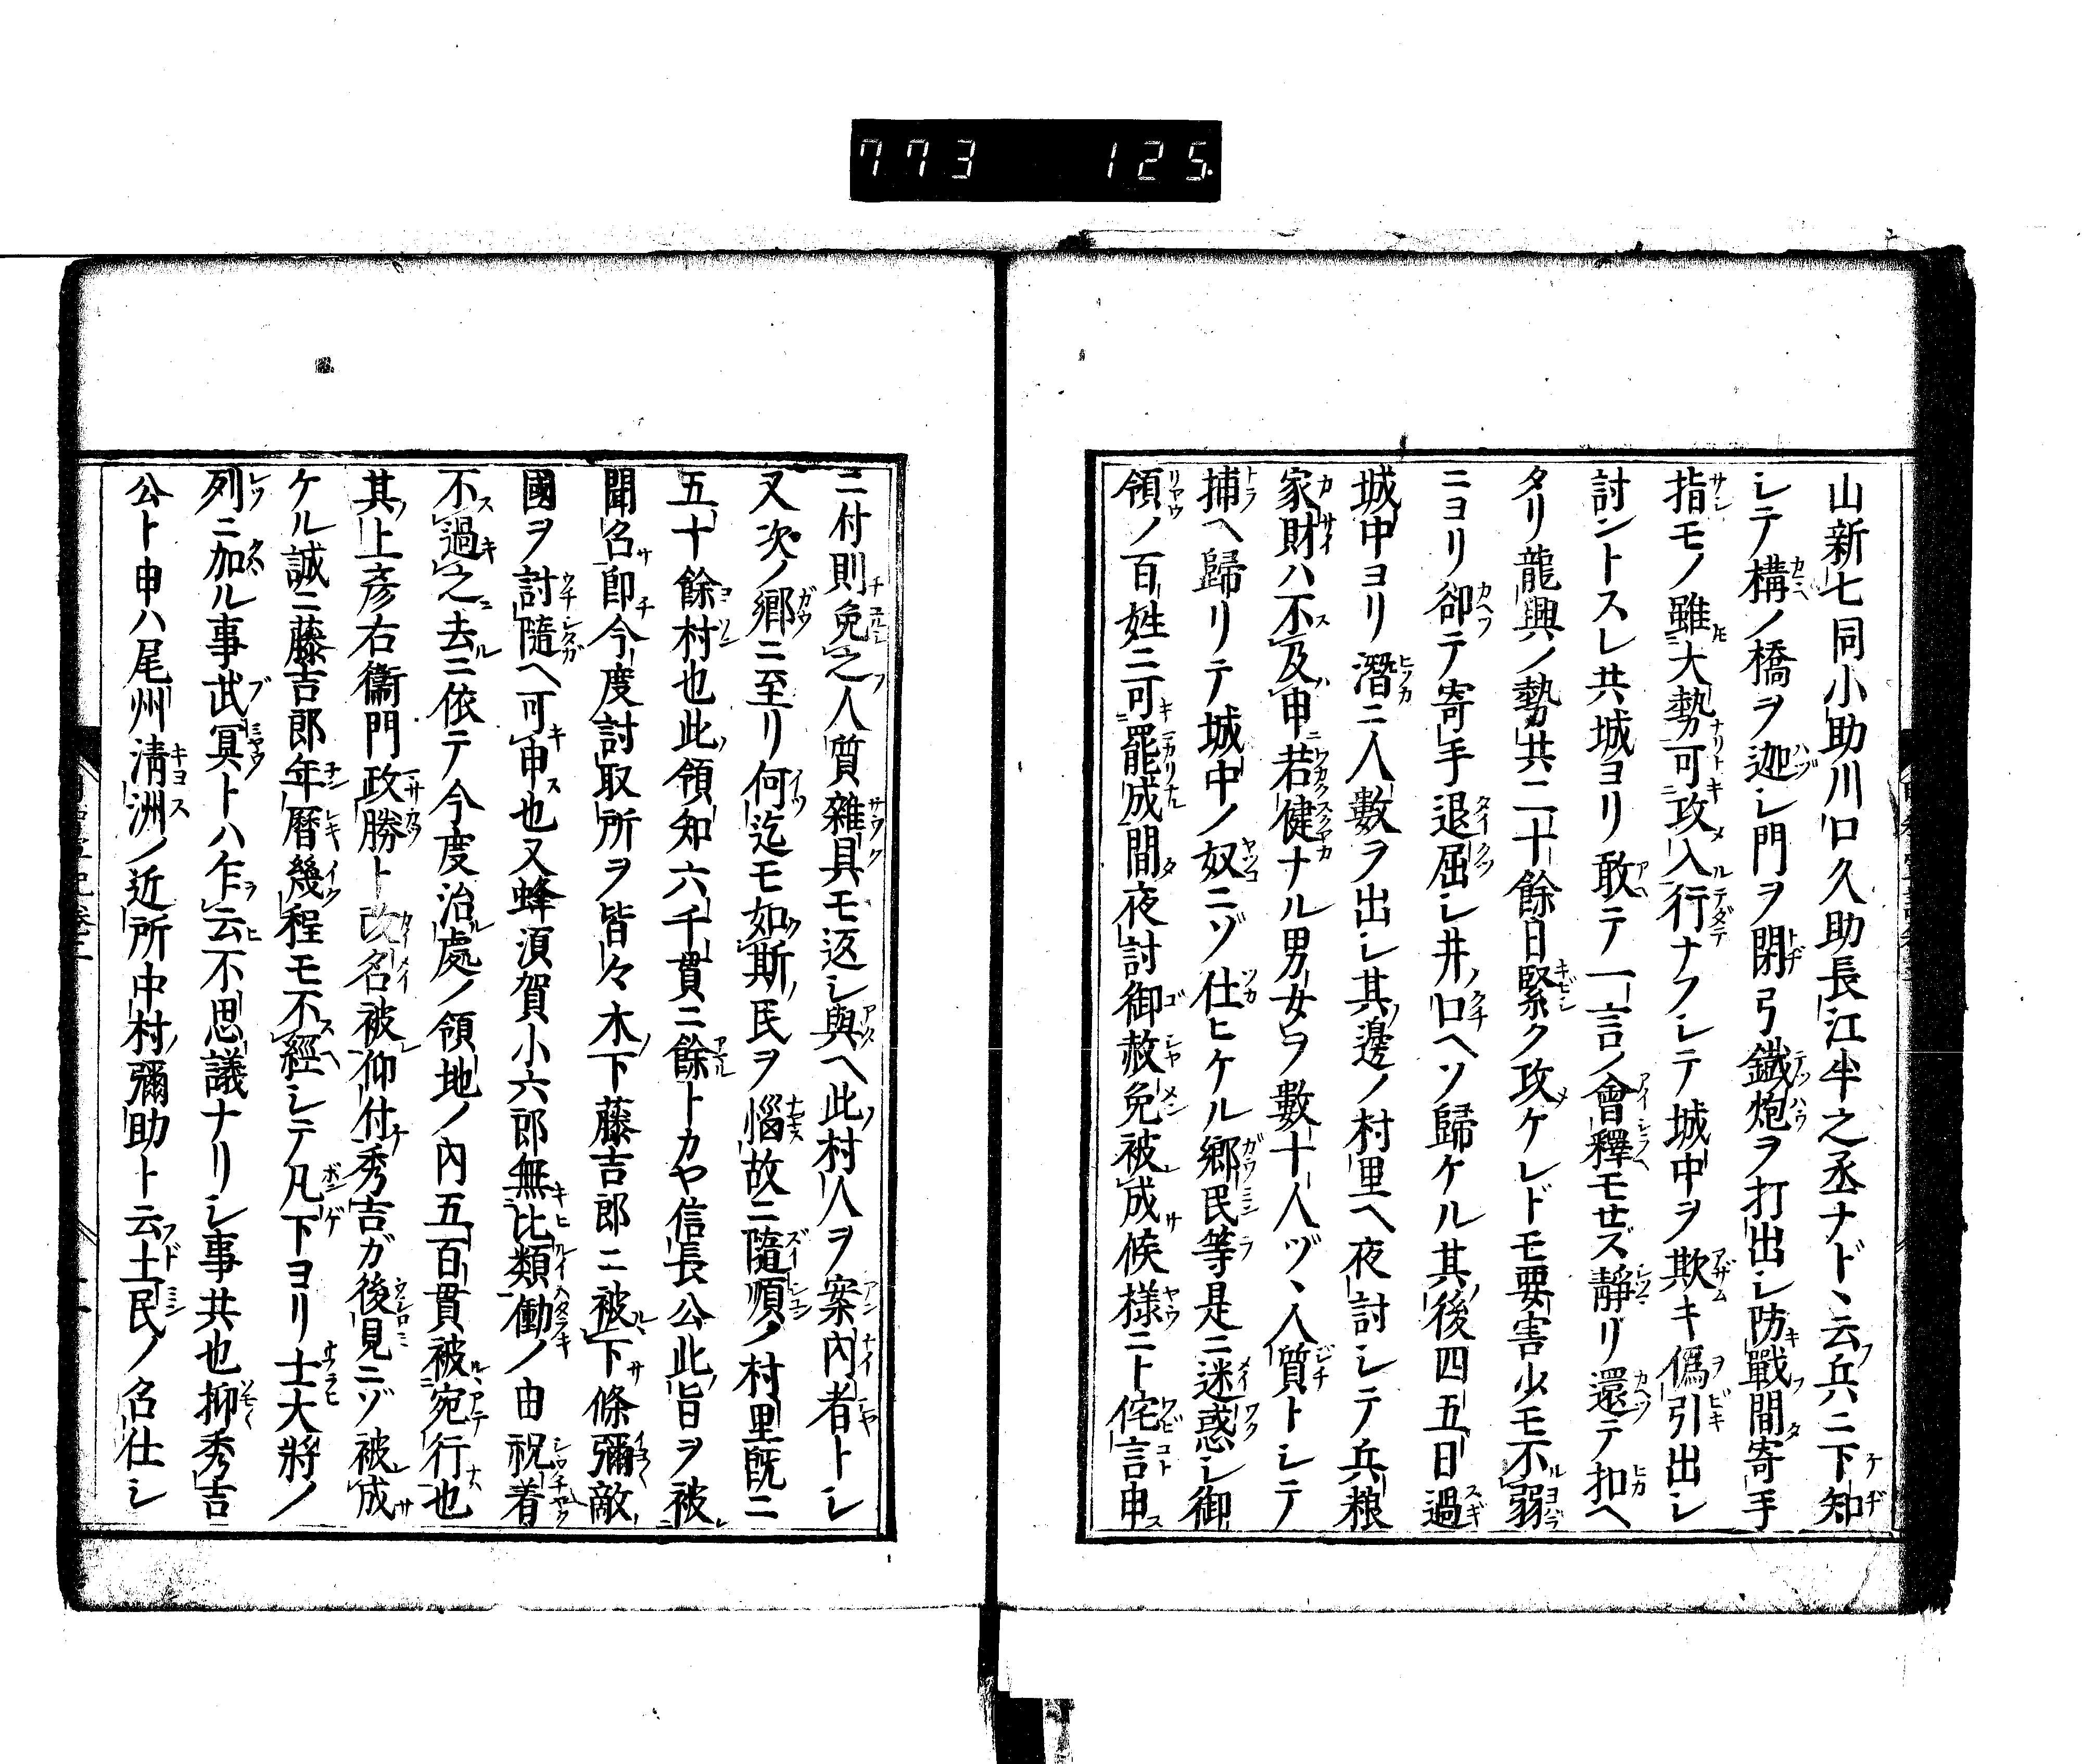 773 125
山新七同小助川口久助長江半之丞ナド云兵ニ下知
シテ構ノ橋ヲ迦シ門ヲ閉弓鐵炮ヲ打出シ防戰間寄手
指モノ雖大勢可攻入行ナフシテ城中ヲ欺キ僞引出シ
討ントスレ共城ヨリ敢テ一言ノ會釋モせズ靜リ還テ扣ヘ
タリ龍興ノ勢共二十餘日緊ク攻ケレドモ要害少モ不弱
ニヨリ卻テ寄手退屈シ井ノ口ヘソ歸ケル其後四五日過
城中ヨリ潛ニ人數ヲ出シ其邊ノ村里ヘ夜討シテ兵粮
家財ハ不及申若健ナル男女ヲ數十人ヅヽ人質トシテ
捕ヘ歸リテ城中ノ奴ニゾ仕ヒケル郷民等是ニ迷惑シ御
領ノ百姓ニ可罷成間夜討御赦免被成候様ニト侘言申
ニ付則免之人質雜具モ返シ與ヘ此村人ヲ案内者トシ
又次ノ郷ニ至リ何迄モ如斯民ヲ惱故ニ隨順ノ村里既ニ
五十餘村也此領知六千貫ニ餘トカヤ信長公此旨ヲ被
聞召即今度討取所ヲ皆々木下藤吉郎ニ被下條彌敵
國ヲ討隨ヘ可申也又蜂須賀小六郎無比類働ノ由祝着
不過之去ニ依テ今度治處ノ領地ノ内五百貫被宛行也
其上彦右衞門政勝ト改名被仰付秀吉ガ後見ニゾ被成
ケル誠ニ藤吉郎年暦幾程モ不經シテ凡下ヨリ士大將ノ
列ニ加ル事武冥トハ乍云不思議ナリシ事共也抑秀吉
公ト申ハ尾州清洲ノ近所中村彌助ト云土民ノ名仕シ